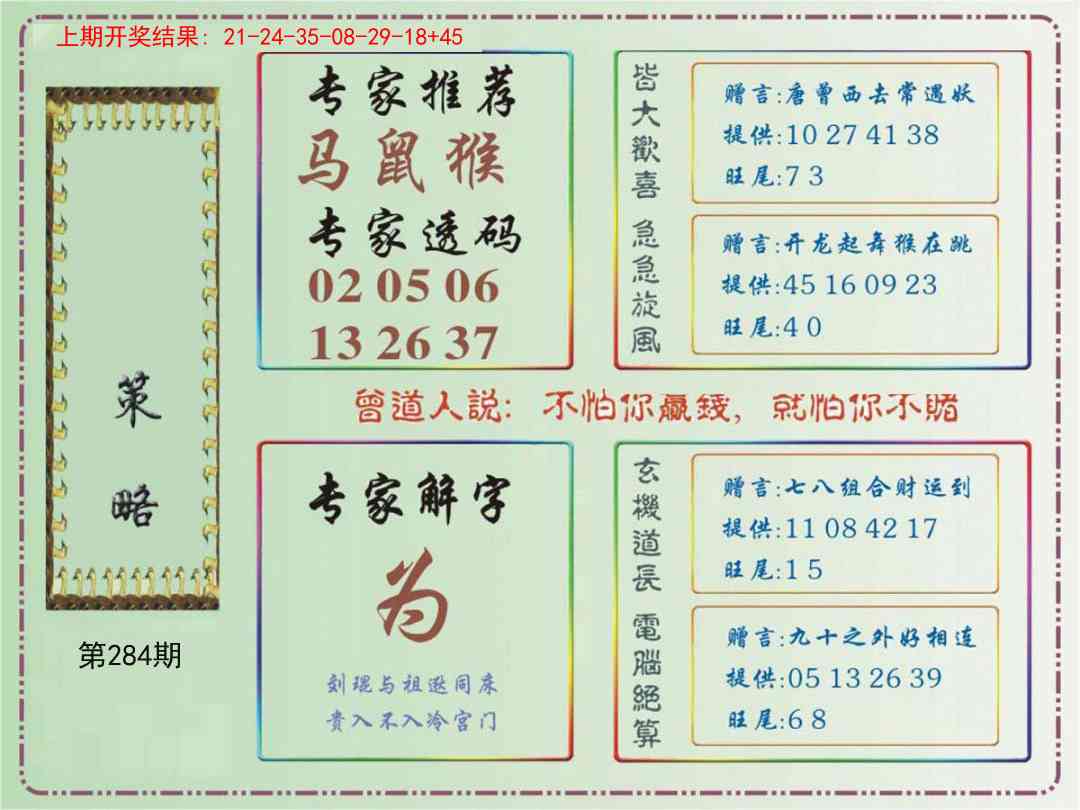 上期开奖结果: 21-24-35-08-29-18+45
策略
第284期
专家推荐
马鼠猴
专家透码
02 05 06
13 26 37
皆大歡喜
赠言:唐曾西去常遇妖
提供:10 27 41 38
旺尾:7 3
急急旋風
赠言:开龙起舞猴在跳
提供:45 16 09 23
旺尾:4 0
曾道人説: 不怕你贏錢, 就怕你不賭
专家解字
为
刘琨与祖逖同床
贵入不入冷宫门
玄機道長
赠言:七八组合财运到
提供:11 08 42 17
旺尾:1 5
電腦絕算
赠言:九十之外好相连
提供:05 13 26 39
旺尾:6 8